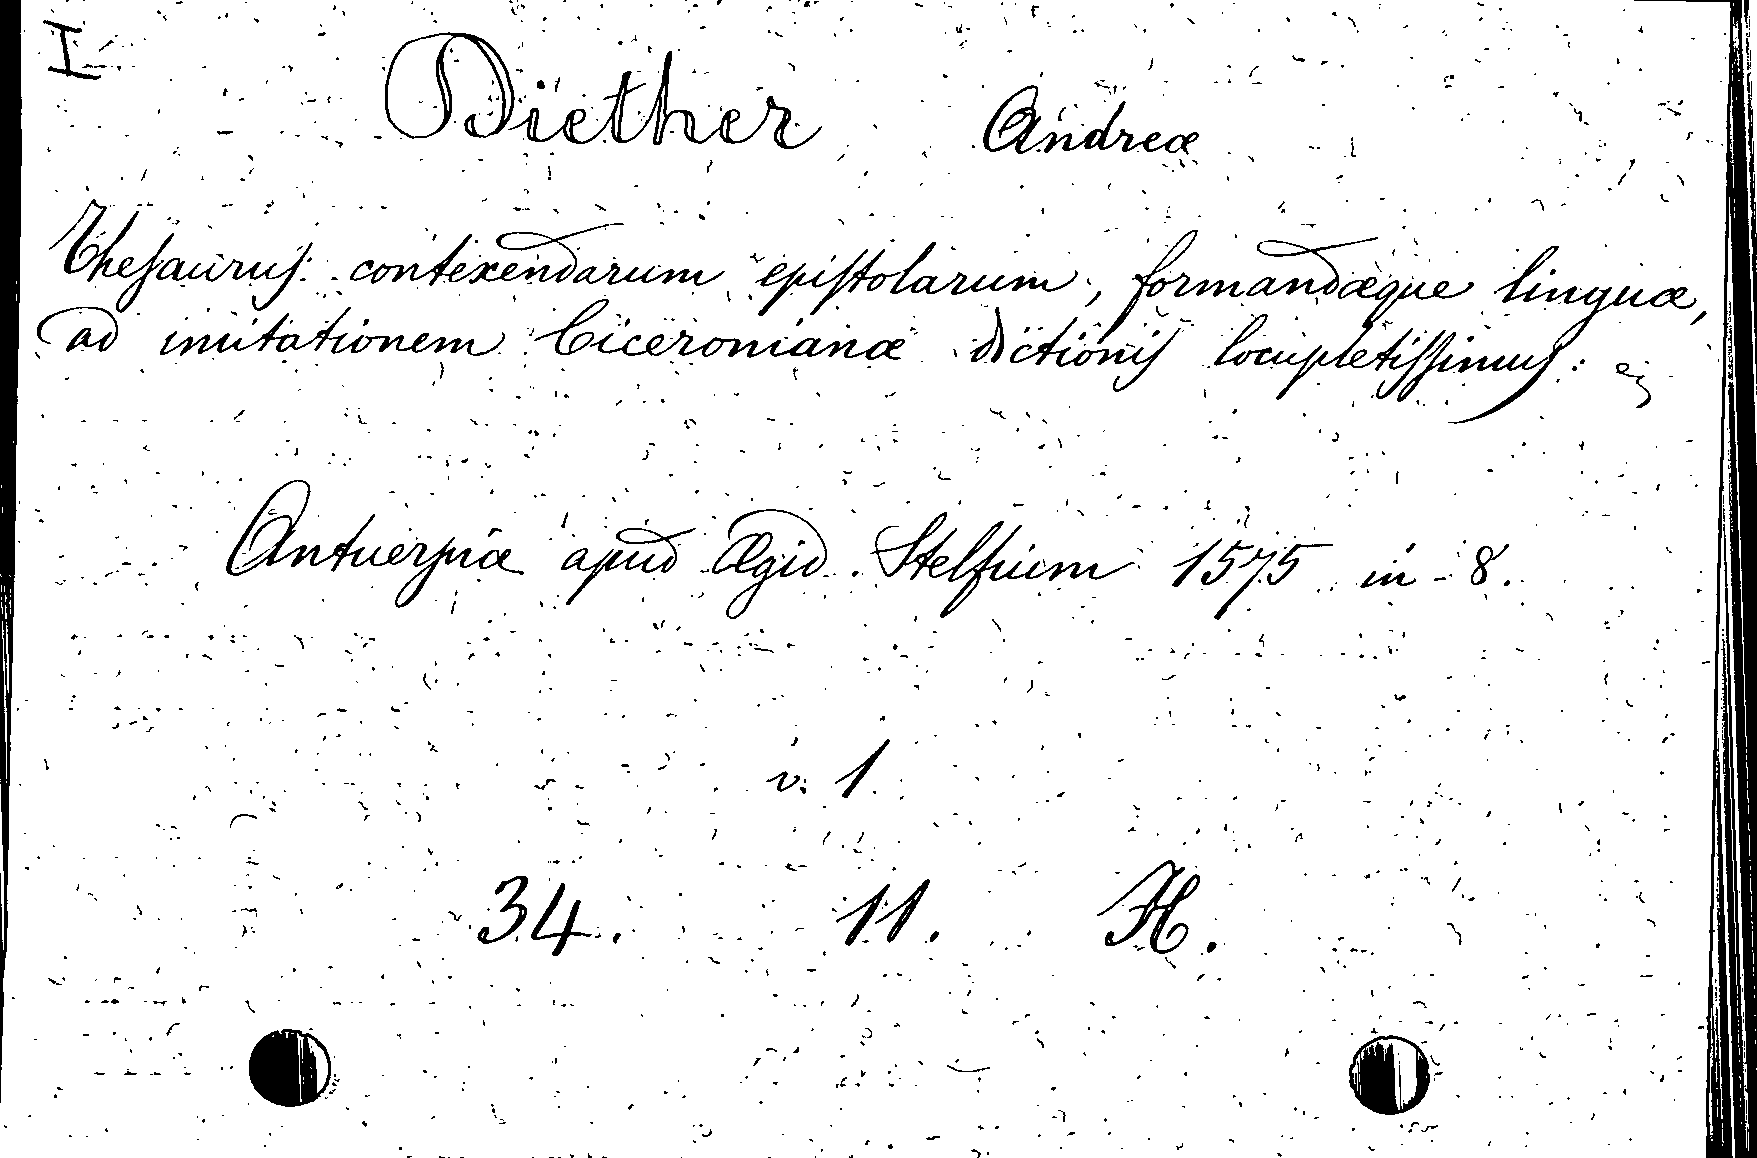 I
Diether Andreæ
Thesaurus contexendarum epistolarum, formandæque linguæ,
ad imitationem Ciceronianæ dictionis locupletissimus:
Antuerpiæ apud Ægid. Stelsium 1575 in-8.
v. 1.
34. 11. H.